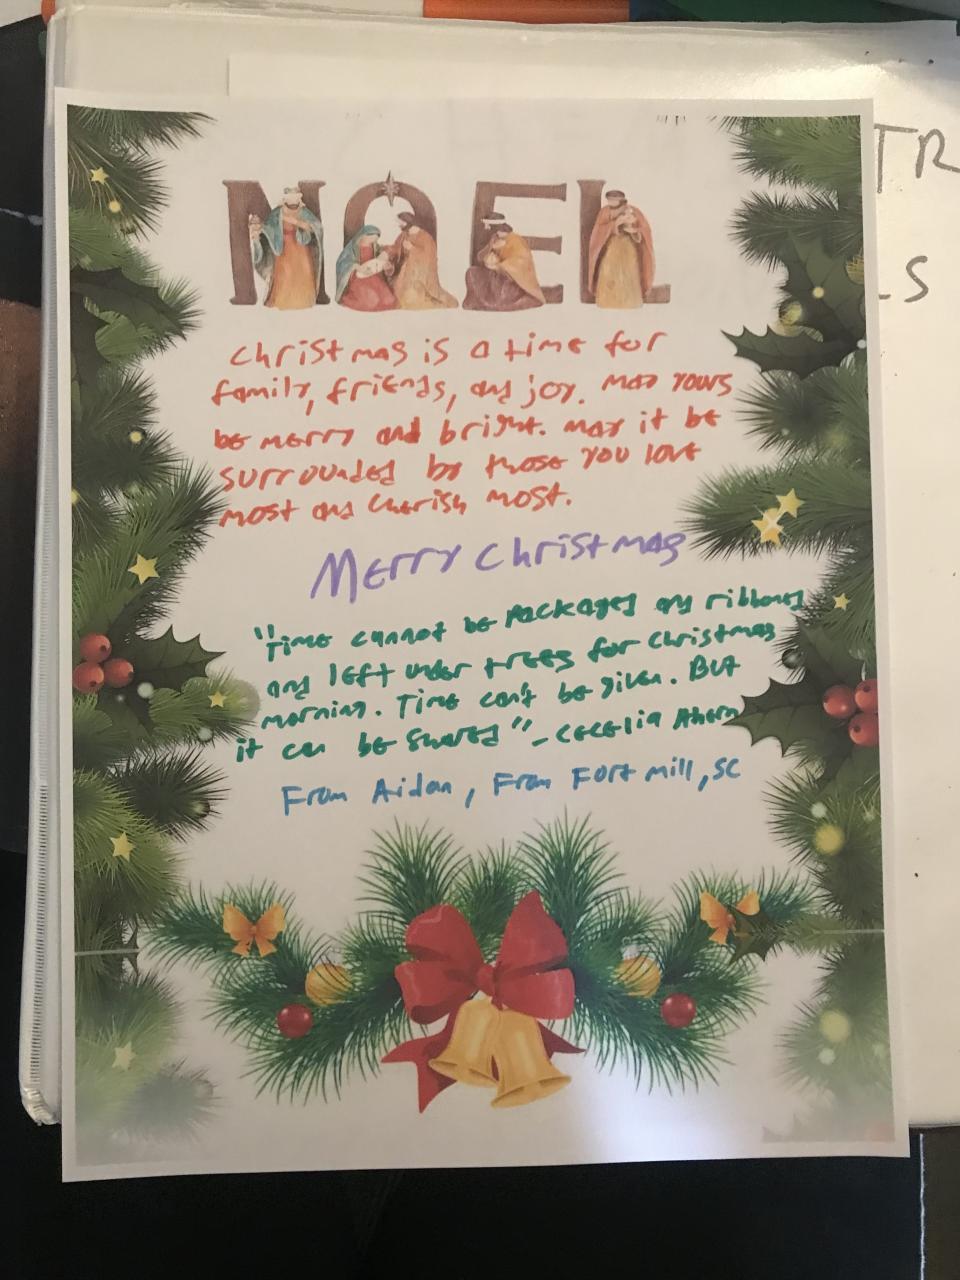 NOEL
Christmas is a time for
family, friends, and joy. May yours
be merry and bright. May it be
surrounded by those you love
most and cherish most.
Merry Christmas
"Time cannot be packaged and ribboned
and left under trees for Christmas
morning. Time can't be given. But
it can be shared" - Cecelia Ahern
From Aidan, From Fort mill, SC
TR
LS